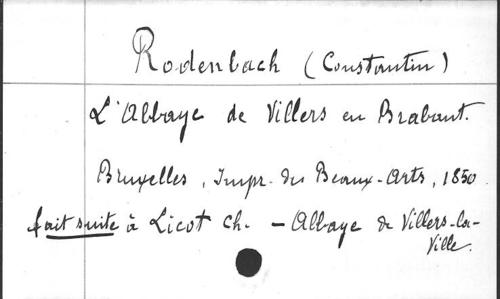 Rodenbach (Constantin)
L'Abbaye de Villers en Brabant.
Bruxelles, Impr. des Beaux-Arts, 1850
fait suite à Licot Ch. - Abbaye de Villers-la-
Ville.